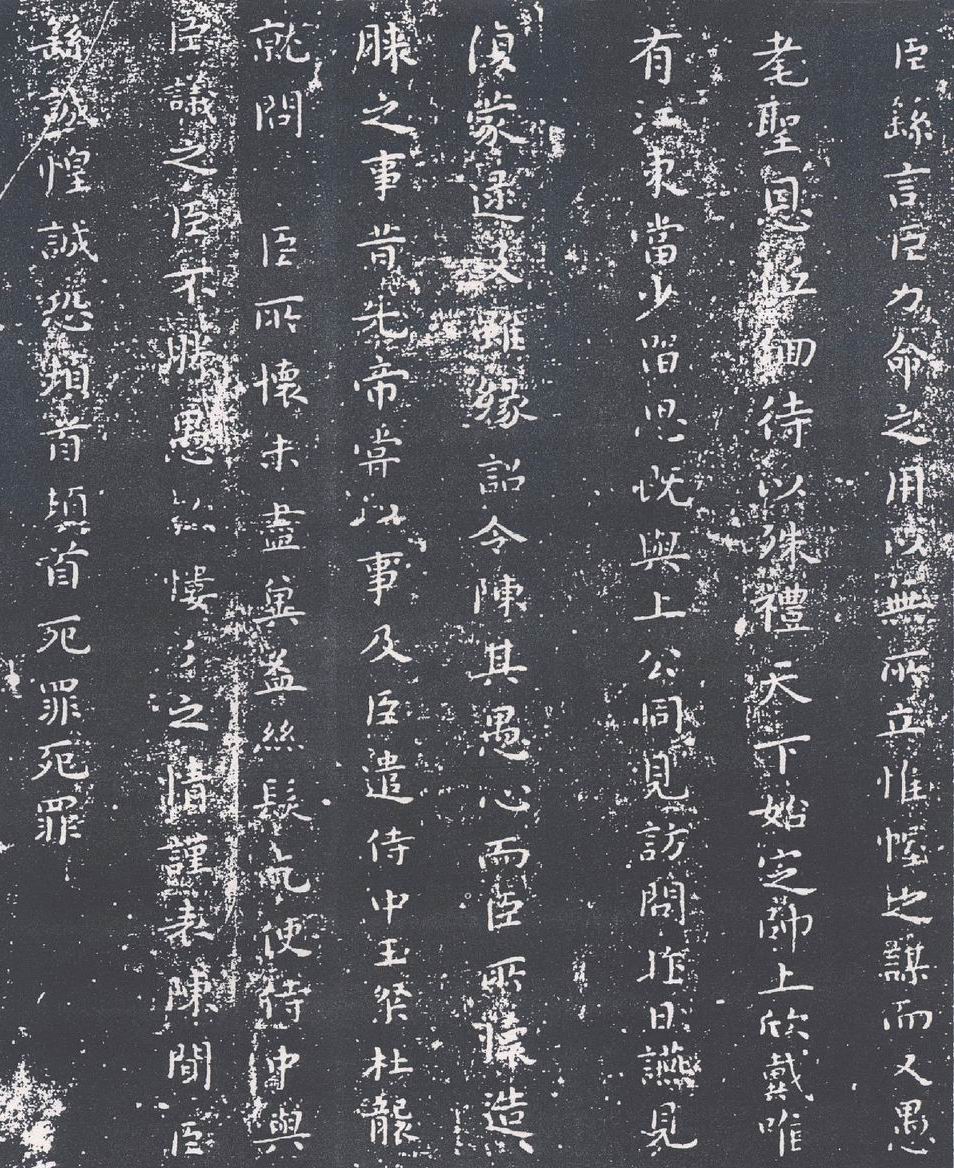 臣繇言臣力命之用以無所立惟幄之謀而又愚
耄聖恩低徊待以殊禮天下始定帥上欣戴唯
有江東當少留思既與上公同見訪問昨日讌見
復蒙逮及雖緣詔令陳其愚心而臣所懷造
膝之事昔先帝嘗以事及臣遣侍中王粲杜襲
就問臣所懷未盡冀益絲髮乞使侍中與
臣議之臣不勝愚以悽々之情謹表陳聞臣
繇誠惶誠恐頓首頓首死罪死罪